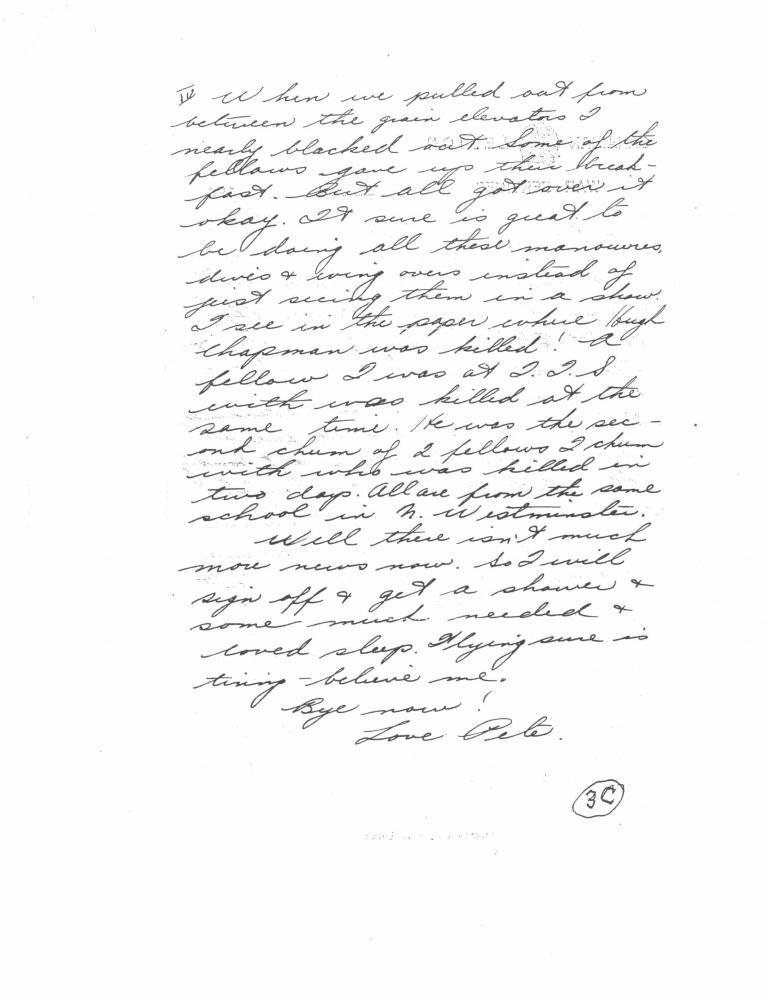 IV When we pulled out from
between the grain elevators I
nearly blacked out. Some of the
fellows gave up their break-
fast. But all got over it
okay. It sure is great to
be doing all these manouvres,
dives & wing overs instead of
just seeing them in a show.
I see in the paper where Hugh
Chapman was killed! A
fellow I was at I.T.S
with was killed at the
same time. He was the sec-
ond chum of 2 fellows I chum
with who was killed in
two days. All are from the same
school in N. Westminster.
Well there isn't much
more news now. So I will
sign off & get a shower &
some much needed &
loved sleep. Flying sure is
tiring - believe me.
Bye now!
Love Pete.
3C